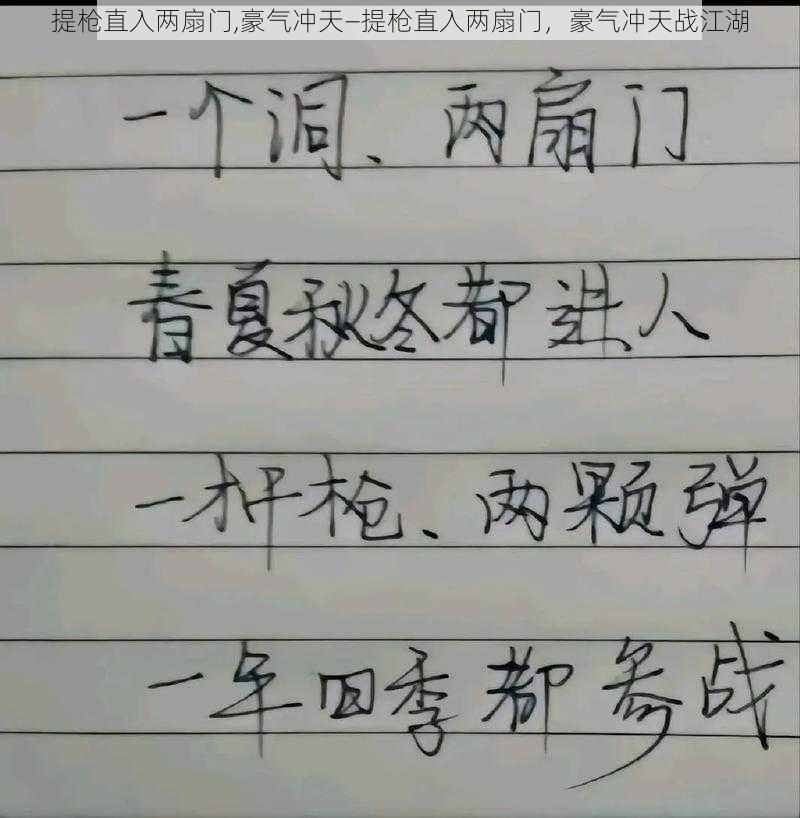 提枪直入两扇门,豪气冲天—提枪直入两扇门，豪气冲天战江湖
一个洞、两扇门
春夏秋冬都进人
一杆枪、两颗弹
一年四季都参战